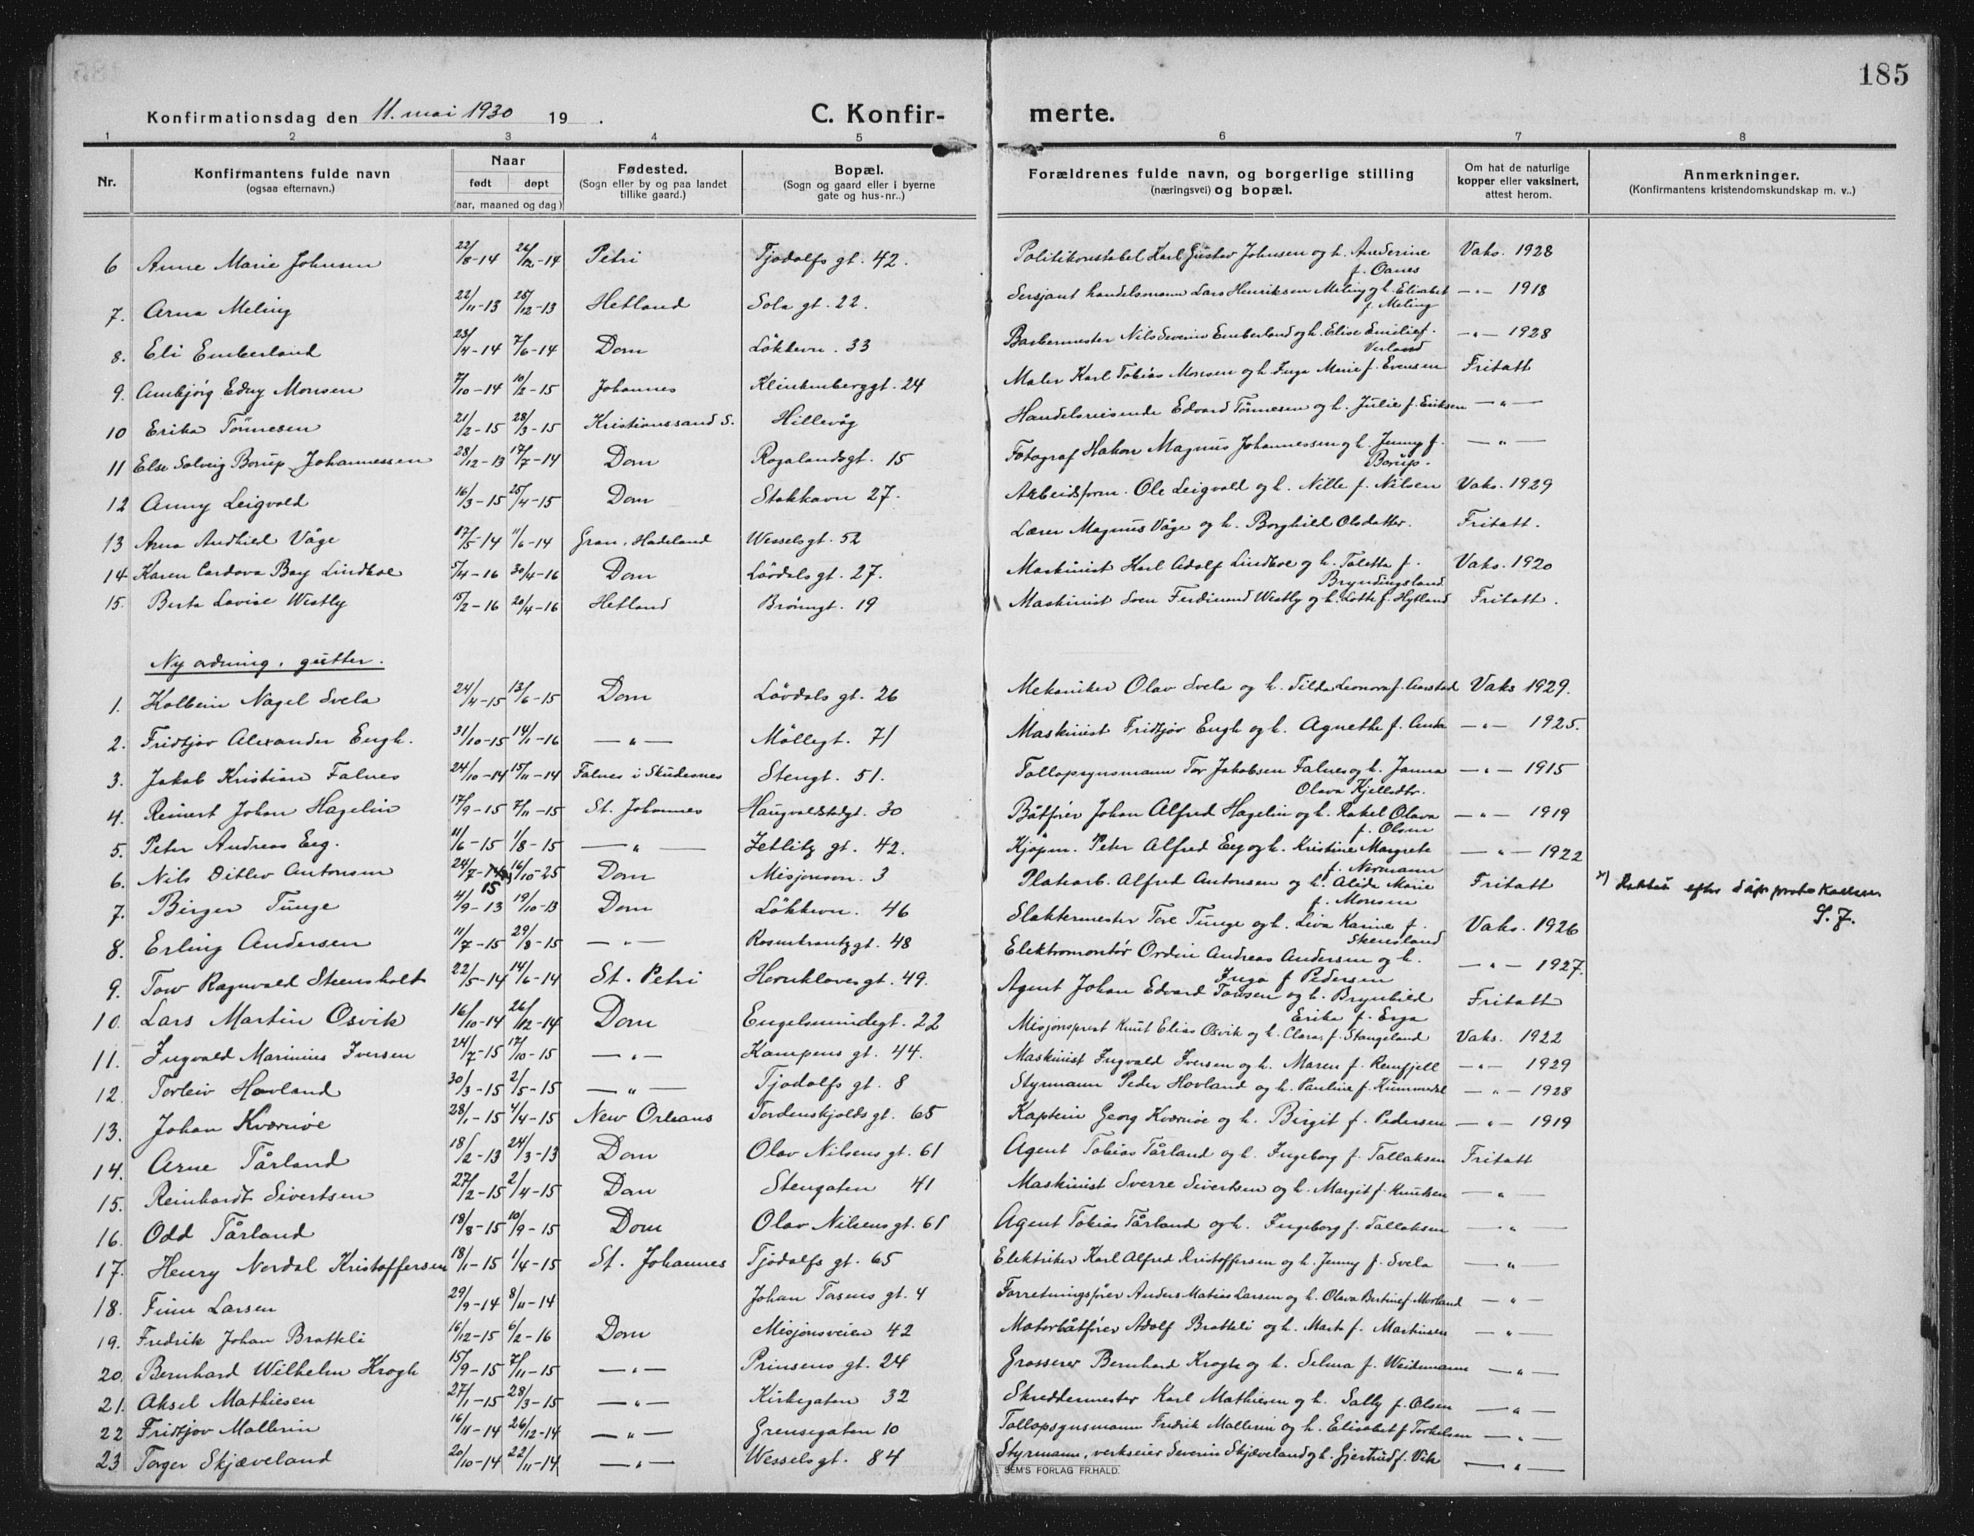 185
Konfirmationsdag den 11. mai 1930 19 .
C. Konfirmerte.
1 2 3 4 5 6 7 8
Nr. | Konfirmantens fulde navn (ogsaa efternavn.) | Naar født døpt (aar, maaned og dag) | Fødested. (Sogn eller by og paa landet tillike gaard.) | Bopæl. (Sogn og gaard eller i byerne gate og hus-nr..) | Forældrenes fulde navn, og borgerlige stilling (næringsvei) og bopæl. | Om hat de naturlige kopper eller vaksinert, attest herom. | Anmerkninger. (Konfirmantens kristendomskundskap m. v..)
6 Anne Marie Johnsen 22/8-14 26/12-14 Petri Tjodolfs gt. 42. Politikonstabel Karl Gustav Johnsen og h. Anderine f. Oanes Vaks. 1928
7. Arna Meling 22/11-13 25/12-13 Hetland Sola gt. 22. Sersjant handelsmann Lars Henriksen Meling og h. Elisabet f. Meling -"- 1918
8. Eli Emberland 23/4-14 7/6-14 Dom Løkkevn. 33 Barbermester Nils Severin Emberland og h. Elise Emilie f. Verland -"- 1928
9. Annbjörg Edny Monsen 7/10-14 10/2-15 Johannes Klinkenberggt. 24 Maler Karl Tobias Monsen og h. Inga Marie f. Evensen Fritatt
10 Erika Tönnesen 21/2-15 28/3-15 Kristianssand S. Hillevåg Handelsreisende Edvard Tönnesen og h. Julie f. Eriksen -"-
11 Else Solveig Borup Johannessen 28/12-13 17/7-14 Dom Rogalandsgt. 15 Fotograf Hakon Magnus Johannessen og h. Jenny f. Borup. -"-
12 Anny Leigvold 16/3-15 25/4-15 Dom Stokkavn 27. Arbeidsform. Ole Leigvold og h. Nille f. Nilsen Vaks. 1929
13 Arna Andhild Våge 17/5-14 11/6-14 Gran, Hadeland Wesselsgt. 52 Lærer Magnus Våge og h. Borghild Olsdatter. Fritatt.
14. Karen Cordova Bay Lindboe 5/4-16 30/4-16 Dom Lövdals gt. 27. Maskinist Karl Adolf Lindboe og h. Tolette f. Bryndingsland Vaks. 1920
15. Berta Lovise Westly 15/2-16 20/4-16 Hetland Brönngt. 19 Maskinist Sven Ferdinand Westly og h. Lotte f. Hytland Fritatt.
Ny ordning, gutter.
1. Kolbein Nagel Svela 24/4-15 13/6-15 Dom Lövdals gt. 26 Mekaniker Olav Svela og h. Tilda Leonora f. Aarstad Vaks 1929.
2. Fridtjov Alexander Engh. 31/10-15 14/1-16 -"- Möllegt. 71 Maskinist Fridtjov Engh og h. Agnethe f. Anda -"- 1925.
3. Jakob Kristian Falnes 24/10-14 15/11-14 Falnes i Skudesnes Stengt. 51. Tollopsynsmann Tor Jakobsen Falnes og h. Janna Olava Kjellsdtr. -"- 1915
4. Reinert Johan Hagelin 17/9-15 7/11-15 St. Johannes Haugvaldstadgt. 30 Båtfører Johan Alfred Hagelin og h. Rakel Olava f. Olsen -"- 1919
5. Peter Andreas Eeg. 11/6-15 1/8-15 -"- Zetlitz gt. 42. Kjöpm. Peter Alfred Eeg og h. Kristine Margrete f. Normann -"- 1922
6. Nils Ditlev Antonsen 24/7-15 x) 16/10-25 Dom Misjonsvn. 3 Platearb. Alfred Antonsen og h. Alida Marie f. Monsen Fritatt x) Rettet efter dåpsprotokollen S. F.
7. Birger Tunge 4/9-13 19/10-13 Dom Løkkevn. 46 Slaktermester Tore Tunge og h. Liva Karine f. Skensland Vaks. 1926
8. Erling Andersen 11/7-15 29/8-15 -"- Rosenkrantzgt. 48 Elektromontör Ordin Andreas Andersen og h. Inga f Pedersen -"- 1927.
9. Tow Ragnvald Steensholt 22/5-14 14/6-14 St. Petri Hornklovesgt. 49. Agent Johan Edvard Towsen og h. Brynhild Erika f. Erga Fritatt
10. Lars Martin Osvik 16/10-14 26/12-14 Dom Engelsmindegt. 22 Misjonsprest Knut Elias Osvik og h. Clara f. Stangeland Vaks. 1922
11. Ingvald Marinius Iversen 24/7-15 17/10-15 -"- Kampens gt. 44. Maskinist Ingvald Iversen og h. Maren f. Remfjell -"- 1929
12. Torleiv Hovland 30/3-15 2/5-15 -"- Tjodolfs gt. 8 Styrmann Peder Hovland og h. Pauline f. Hummedal -"- 1928
13. Johan Kværnöe 28/1-15 4/4-15 New Orleans Tordenskjolds gt. 65 Kaptein Georg Kværnöe og h. Birgit f. Pedersen -"- 1919
14. Arne Tårland 18/2-13 24/3-13 Dom Olav Nilsens gt. 61 Agent Tobias Tårland og h. Ingeborg f. Tallaksen Fritatt
15. Reinhardt Sivertsen 27/2-15 2/4-15 Dom Stengaten 41 Maskinist Sverre Sivertsen og h. Margit f. Knutsen -"-
16. Odd Tårland 18/8-15 10/9-15 Dom Olav Nilsens gt. 61 Agent Tobias Tårland og h. Ingeborg f. Tallaksen -"-
17. Henry Nordal Kristoffersen 18/1-15 1/4-15 St. Johannes Tjodolfs gt. 65 Elektriker Karl Alfred Kristoffersen og h. Jenny f. Svela -"-
18. Finn Larsen 29/9-14 8/11-14 Johan Torsens gt. 4 Forretningsfører Anders Matias Larsen og h. Olava Bertine f. Morland -"-
19. Fredrik Johan Brattli 16/12-15 6/2-16 Dom Misjonsveien 42 Motorbåtfører Adolf Brattli og h. Marta f. Martinsen -"-
20. Bernhard Wilhelm Krogh 15/9-15 7/11-15 -"- Prinsens gt. 24 Grosserer Bernhard Krogh og h. Selma f. Weidemann -"-
21. Aksel Mathiesen 27/1-15 28/3-15 -"- Kirkegaten 32 Skreddermester Karl Mathiesen og h. Sally f. Olsen -"-
22 Fridtjov Mallerin 16/11-14 26/12-14 -"- Grensegaten 10 Tollopsynsmann Fredrik Mallerin og h. Elisabet f Torkelsen -"-
23 Torger Skjæveland 20/10-14 22/11-14 -"- Wesselsgt. 84 Styrmann, verkseier Severin Skjæveland og h. Gjertrud f. Vik -"-
SEM'S FORLAG FR.HALD.